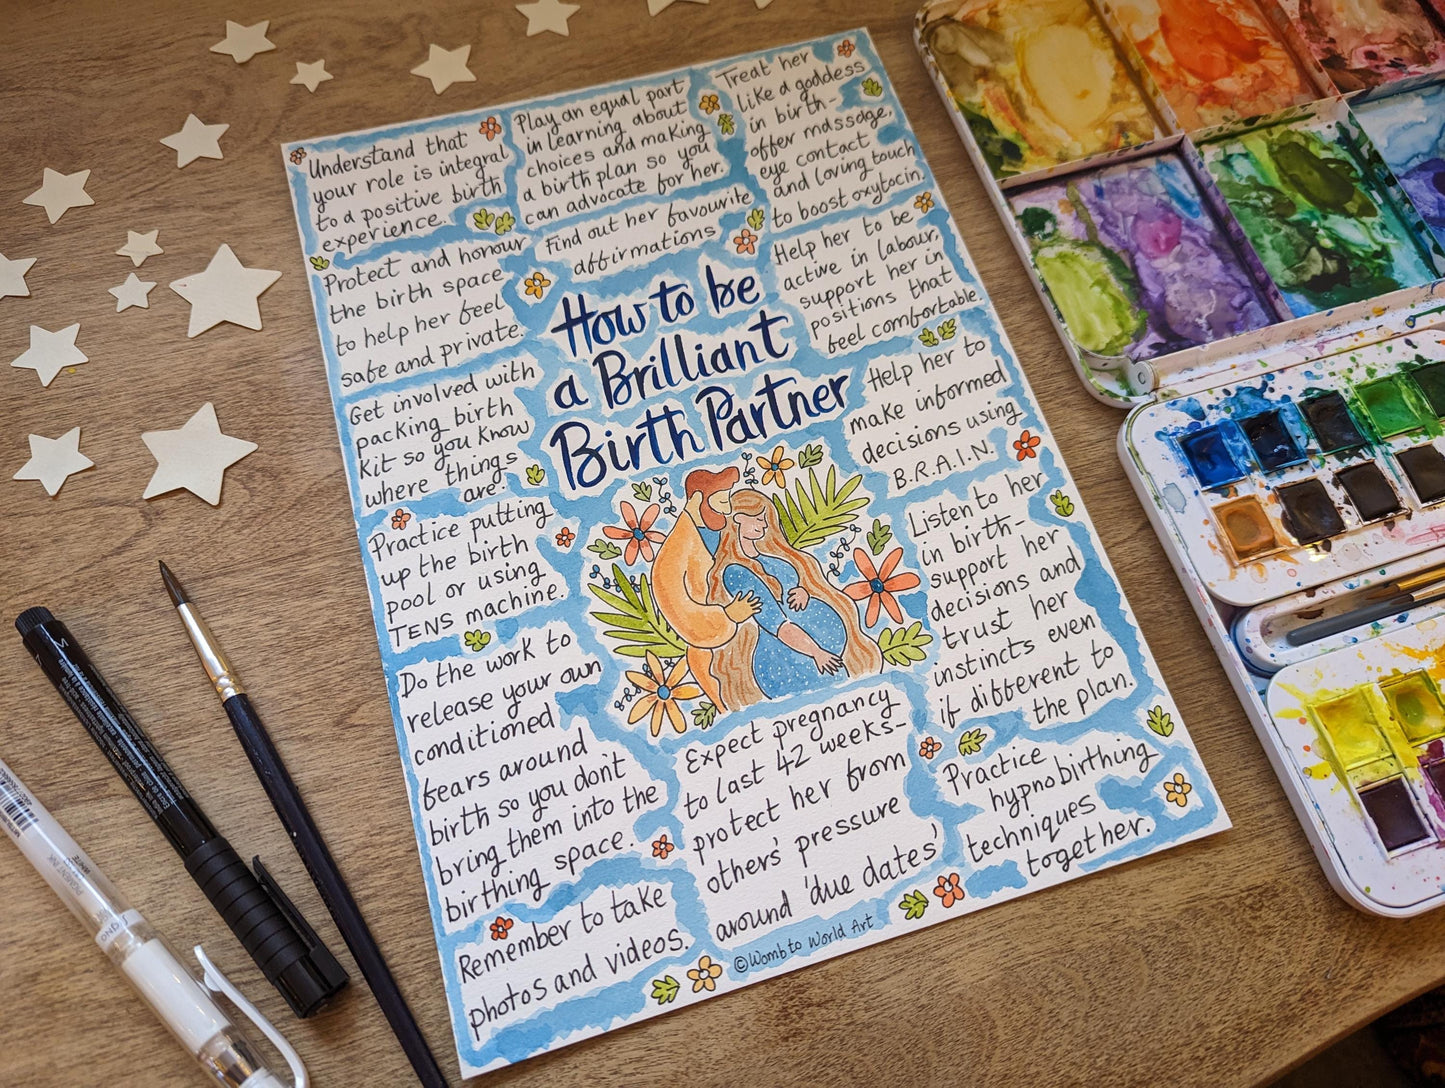 How to be
a Brilliant
Birth Partner
Understand that
your role is integral
to a positive birth
experience.
Play an equal part
in learning about
choices and making
a birth plan so you
can advocate for her.
Treat her
like a goddess
in birth-
offer massage,
eye contact
and loving touch
to boost oxytocin.
Protect and honour
the birth space
to help her feel
safe and private.
Find out her favourite
affirmations
Help her to be
active in labour,
support her in
positions that
feel comfortable.
Get involved with
packing birth
kit so you know
where things
are.
Help her to
make informed
decisions using
B.R.A.I.N.
Practice putting
up the birth
pool or using
TENS machine.
Listen to her
in birth-
support her
decisions and
trust her
instincts even
if different to
the plan.
Do the work to
release your own
conditioned
fears around
birth so you don't
bring them into the
birthing space.
Expect pregnancy
to last 42 weeks-
protect her from
others' pressure
around 'due dates'
Practice
hypnobirthing
techniques
together.
Remember to take
photos and videos.
©Womb to World Art